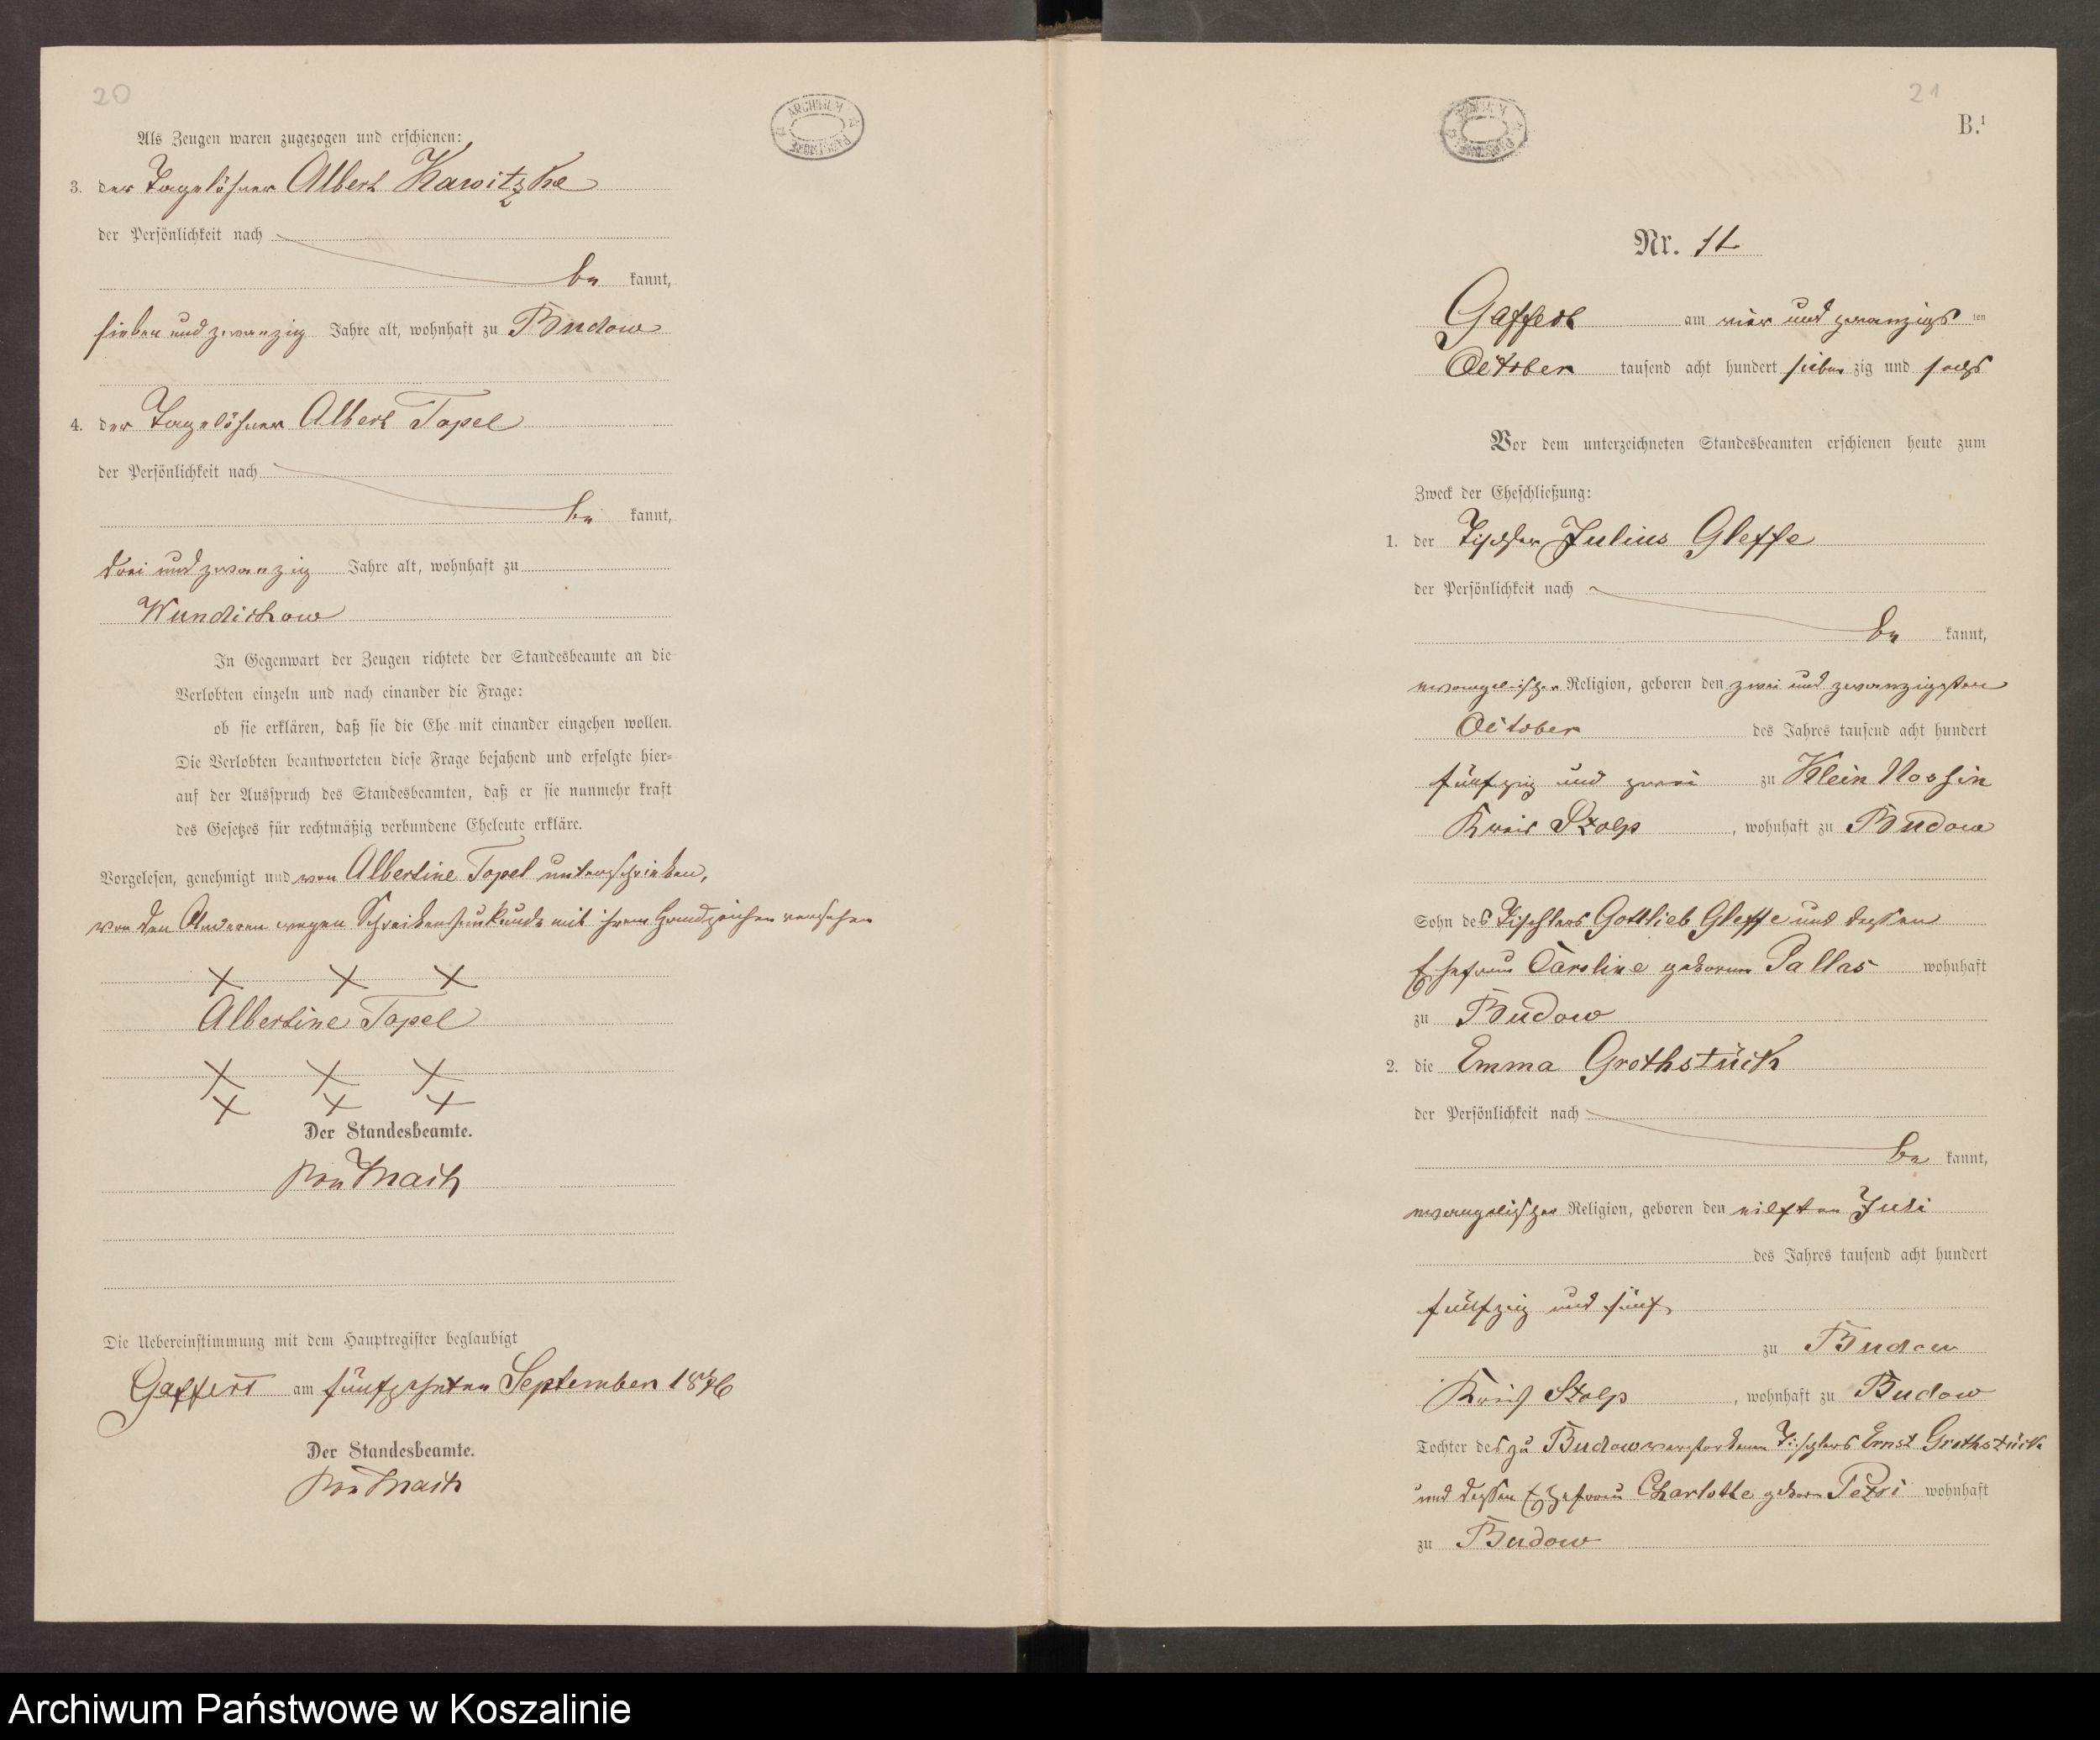 20
Als Zeugen waren zugezogen und erschienen:
3. der Tagelöhner Albert Kawitzke
der Persönlichkeit nach
be kannt,
sieben und zwanzig Jahre alt, wohnhaft zu Budow
4. der Tagelöhner Albert Topel
der Persönlichkeit nach
be kannt,
drei und zwanzig Jahre alt, wohnhaft zu
Wundichow
In Gegenwart der Zeugen richtete der Standesbeamte an die
Verlobten einzeln und nach einander die Frage:
ob sie erklären, daß sie die Ehe mit einander eingehen wollen.
Die Verlobten beantworteten diese Frage bejahend und erfolgte hier-
auf der Ausspruch des Standesbeamten, daß er sie nunmehr kraft
des Gesetzes für rechtmäßig verbundene Eheleute erkläre.
Vorgelesen, genehmigt und von Albertine Topel unterschrieben,
von den Anderen wegen Schreibensunkunde mit ihrem Handzeichen versehen
x x x
Albertine Topel
x x x
x x x
Der Standesbeamte.
Die Uebereinstimmung mit dem Hauptregister beglaubigt
Gaffert am fünfzehnten September 1876
Der Standesbeamte.
ARCHIWUM PAŃSTWOWE
ARCHIWUM PAŃSTWOWE
21
B.¹
Nr.
Gaffert am vier und zwanzigs ten
October tausend acht hundert sieben zig und sechs
Vor dem unterzeichneten Standesbeamten erschienen heute zum
Zweck der Eheschließung:
1. der Tischler Julius Gleffe
der Persönlichkeit nach
be kannt,
evangelischer Religion, geboren den zwei und zwanzigsten
October des Jahres tausend acht hundert
fünfzig und zwei zu Klein Nossin
Kreis Stolp, wohnhaft zu Budow
Sohn des Tischlers Gottlieb Gleffe und dessen
Ehefrau Caroline geborene Pallas wohnhaft
zu Budow
2. die Emma Grothstück
der Persönlichkeit nach
be kannt,
evangelischer Religion, geboren den eilften Juli
des Jahres tausend acht hundert
fünfzig und fünf
zu Budow
Kreis Stolp, wohnhaft zu Budow
Tochter des zu Budow verstorbenen Tischlers Ernst Grothstück
und dessen Ehefrau Charlotte geborne Petri wohnhaft
zu Budow
Archiwum Państwowe w Koszalinie